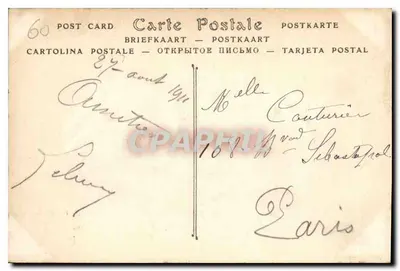 60
POST CARD Carte Postale POSTKARTE
BRIEFKAART — POSTKAART
CARTOLINA POSTALE — ОТКРЫТОЕ ПИСЬМО — TARJETA POSTAL
27 aout 1911
CPARAMA
Melle
Couturier
108 Bvd Sebastopol
Paris